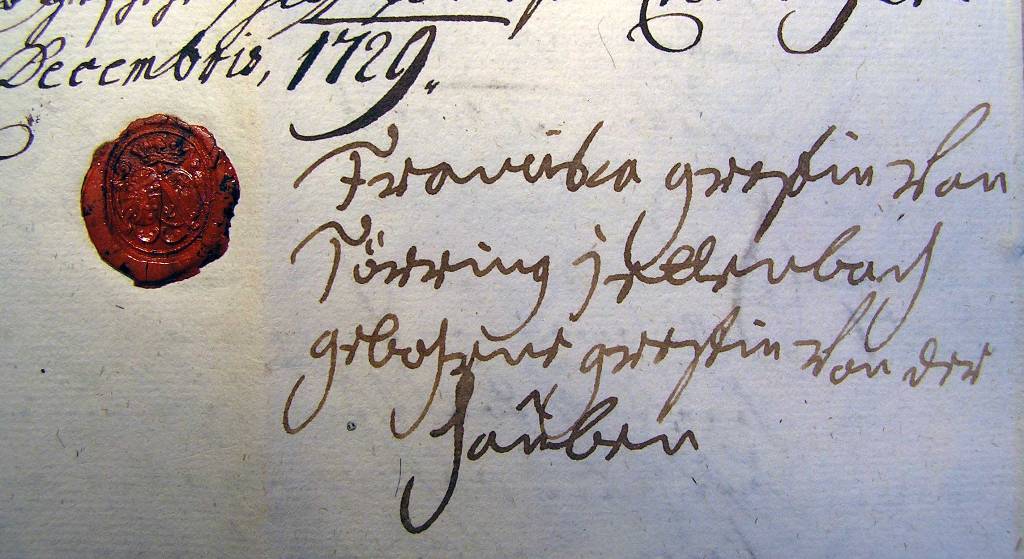 Decembris, 1729.
Francisca greffin von
Törring Jettenbach
gebohrene greffin von der
Hauben